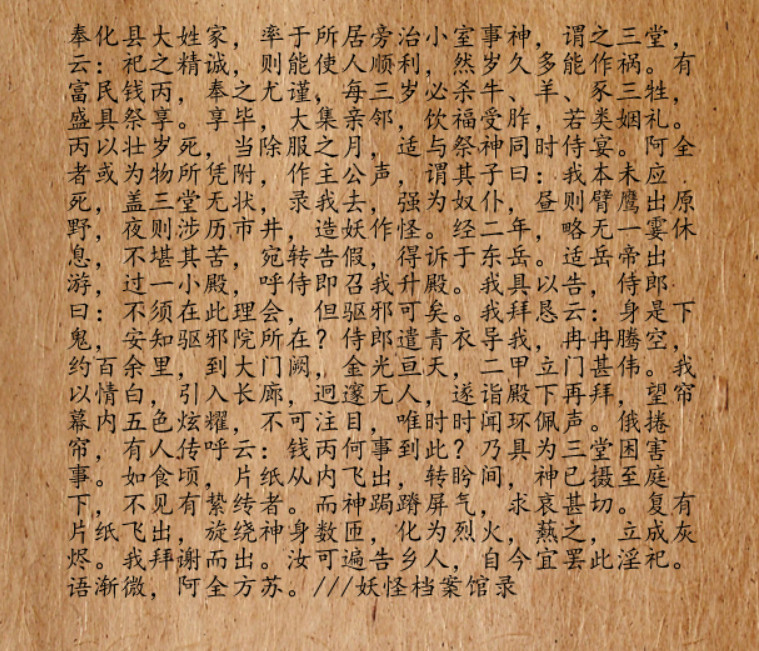 奉化县大姓家，率于所居旁治小室事神，谓之三堂，
云：祀之精诚，则能使人顺利，然岁久多能作祸。有
富民钱丙，奉之尤谨，每三岁必杀牛、羊、豕三牲，
盛具祭享。享毕，大集亲邻，饮福受胙，若类姻礼。
丙以壮岁死，当除服之月，适与祭神同时侍宴。阿全
者或为物所凭附，作主公声，谓其子曰：我本未应
死，盖三堂无状，录我去，强为奴仆，昼则臂鹰出原
野，夜则涉历市井，造妖作怪。经二年，略无一霎休
息，不堪其苦，宛转告假，得诉于东岳。适岳帝出
游，过一小殿，呼侍即召我升殿。我具以告，侍郎
曰：不须在此理会，但驱邪可矣。我拜恳云：身是下
鬼，安知驱邪院所在？侍郎遣青衣导我，冉冉腾空，
约百余里，到大门阙，金光亘天，二甲立门甚伟。我
以情白，引入长廊，迥邃无人，遂诣殿下再拜，望帘
幕内五色炫耀，不可注目，唯时时闻环佩声。俄捲
帘，有人传呼云：钱丙何事到此？乃具为三堂困害
事。如食顷，片纸从内飞出，转盻间，神已摄至庭
下，不见有絷缚者。而神跼蹐屏气，求哀甚切。复有
片纸飞出，旋绕神身数匝，化为烈火，爇之，立成灰
烬。我拜谢而出。汝可遍告乡人，自今宜罢此淫祀。
语渐微，阿全方苏。///妖怪档案馆录